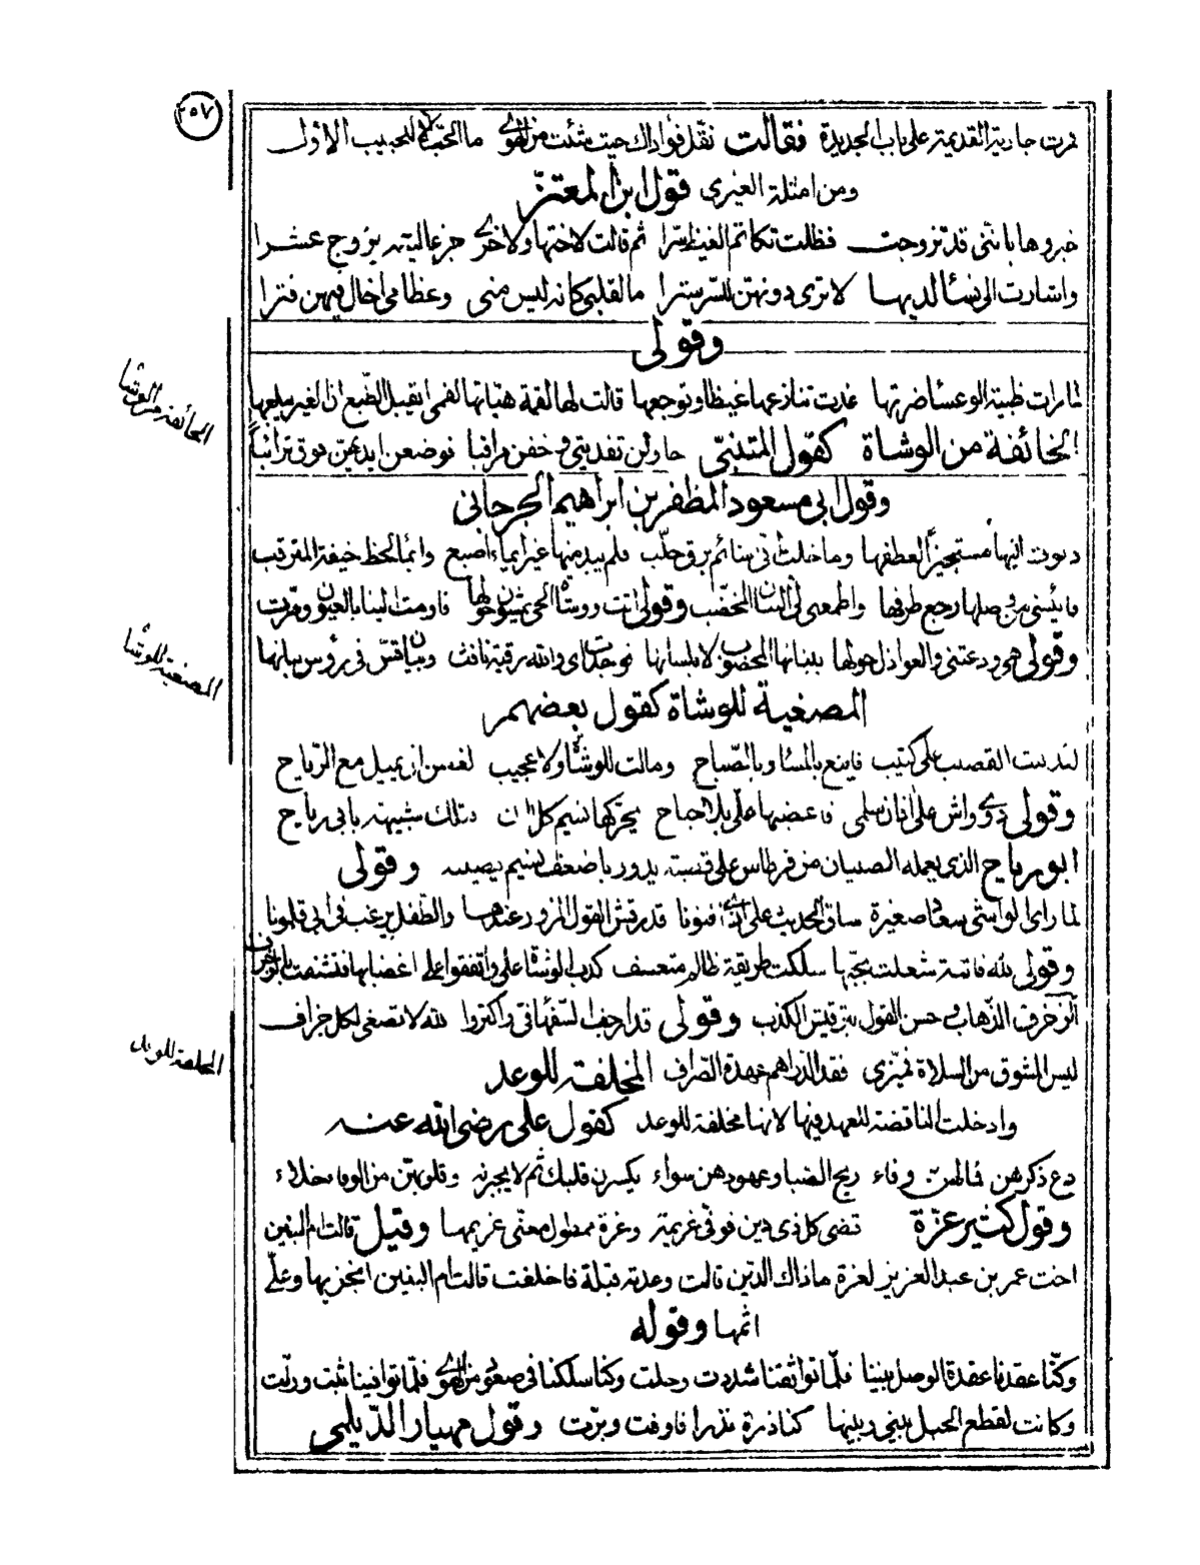 ٢٥٧
فمرت جارية القديمة على باب الجديدة فقالت نقل فؤادك حيث شئت من الهوى ما الحب إلا للحبيب الاول
ومن امثلة الغيرى قول ابن المعتز
خبروها باننى قد تزوجت فظلت تكاتم الغيظ سرا ثم قالت لاختها ولاخرى جزعا ليته تزوج عشرا
واشارت الى نساء لديها لا ترى دونهن للسر سترا ما لقلبى كانه ليس منى وعظامى اخال فيهن فترا
وقولى
لما رات ظبية الوعساء ضرتها غدت تنازعها غيظا وتوجعها قالت لها لقمة هيأتها لفمى ايقبل الطبع ان الغير يبلعها
الخائفة من الوشاة
الخائفة من الوشاة كقول المتنبى حاولن تفديتى وخفن مراقبا فوضعن ايديهن فوق ترائبا
وقول ابى مسعود المظفر بن ابراهيم الجرجانى
دنوت اليها مستجيزا لعطفها وما خلت انى شائم برق خلب فلم يبد منها غير ايماء اصبع وايما لحظ خيفة المترقب
فايئسنى من وصلها رجع طرفها واطمعنى لى البنان المخضب وقولى اتت ووشاة الحى يمشون حولها فاومت الينا بالعيون ومرت
وقولى هى ودعتنى والعواذل حولها ببنانها المخضوب لا بلسانها نوجدت اى والله رقية نافث وبيان قس فى رؤس بنانها
المصغية للوشا
المصغية للوشاة كقول بعضهم
لئن بت القصب على كثيب فاينع بالمساء وبالصباح ومالت للوشاة ولا عجيب لغصن ان يميل مع الرياح
وقولى وواش على اذان سلمى فاغضبها على بلا جناح يحركها نسيم كل ان وتلك شبيهة بابى رياح
ابو رياح الذى يعمله الصبيان من قرطاس على قصبة يدور باضعف نسيم يصيبه وقولى
لما راى الواشى سعاد صغيرة ساق الحديث على فنونا قد رقش القول المزور عندها والطفل يرغب فى ابى قلمونا
وقولى لله فاتنة شعلت بحبها سلكت طريقة ظالم متعسف كذب الوشاة على واتفقوا على اغضابها فتشنفت بالزخرف
الزخرف الذهاب وحسن القول بترقيش الكذب وقولى قد ارجف السفهاء فى واكثروا لله لا تصغى لكل جزاف
ليس المشوق من السلاة تميزى فقد الدراهم عهدة الصراف المخلفة للوعد
المخلفة للوعد
وادخلت الناقضة للعهد فيها لانها مخلفة للوعد كقول على رضى الله عنه
دع ذكرهن فما لهن وفاء ريح الصبا وعهودهن سواء يكسرن قلبك ثم لا يجبرنه وقلوبهن من الوفاء خلاء
وقول كثير عزة قضى كل ذى دين فوفى غريمه وعزة ممطول معنى غريمها وقيل قالت ام البنين
اخت عمر بن عبد العزيز لعزة ما ذاك الدين قالت وعدته قبلة فاخلفت قالت ام البنين انجزيها وعلى
اثمها وقوله
وكنا عقدنا عقدة الوصل بيننا فلما تواثقنا شددت وحلت وكنا سلكنا فى صعود من الهوى فلما توافينا ثبت وزلت
وكانت لقطع الحبل بينى وبينها كناذرة نذرا فاوفت وبرت وقول مهيار الديلمى